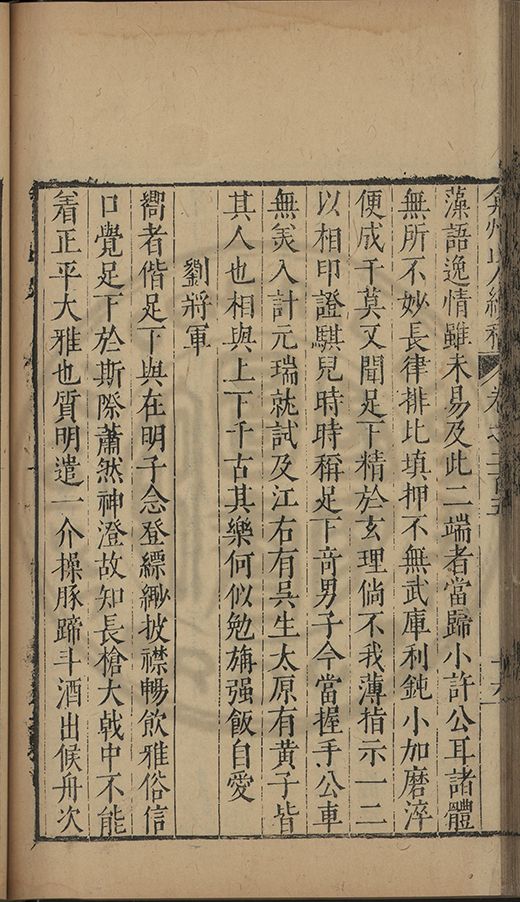 弇州山人續稿 卷之二百五 十六
藻語逸情雖未易及此二端者當歸小許公耳諸體
無所不妙長律排比填押不無武庫利鈍小加磨淬
便成干莫又聞足下精於玄理倘不我薄指示一二
以相印證騏兒時時稱足下奇男子今當握手公車
無羙入計元瑞就試及江右有吳生太原有黃子皆
其人也相與上下千古其樂何似勉旃强飯自愛
劉將軍
衢者偕足下與在明子念登縹緲披襟暢飲雅俗信
口覺足下於斯際蕭然神澄故知長槍大戟中不能
着正平大雅也質明遣一介操豚蹄斗酒出候舟次